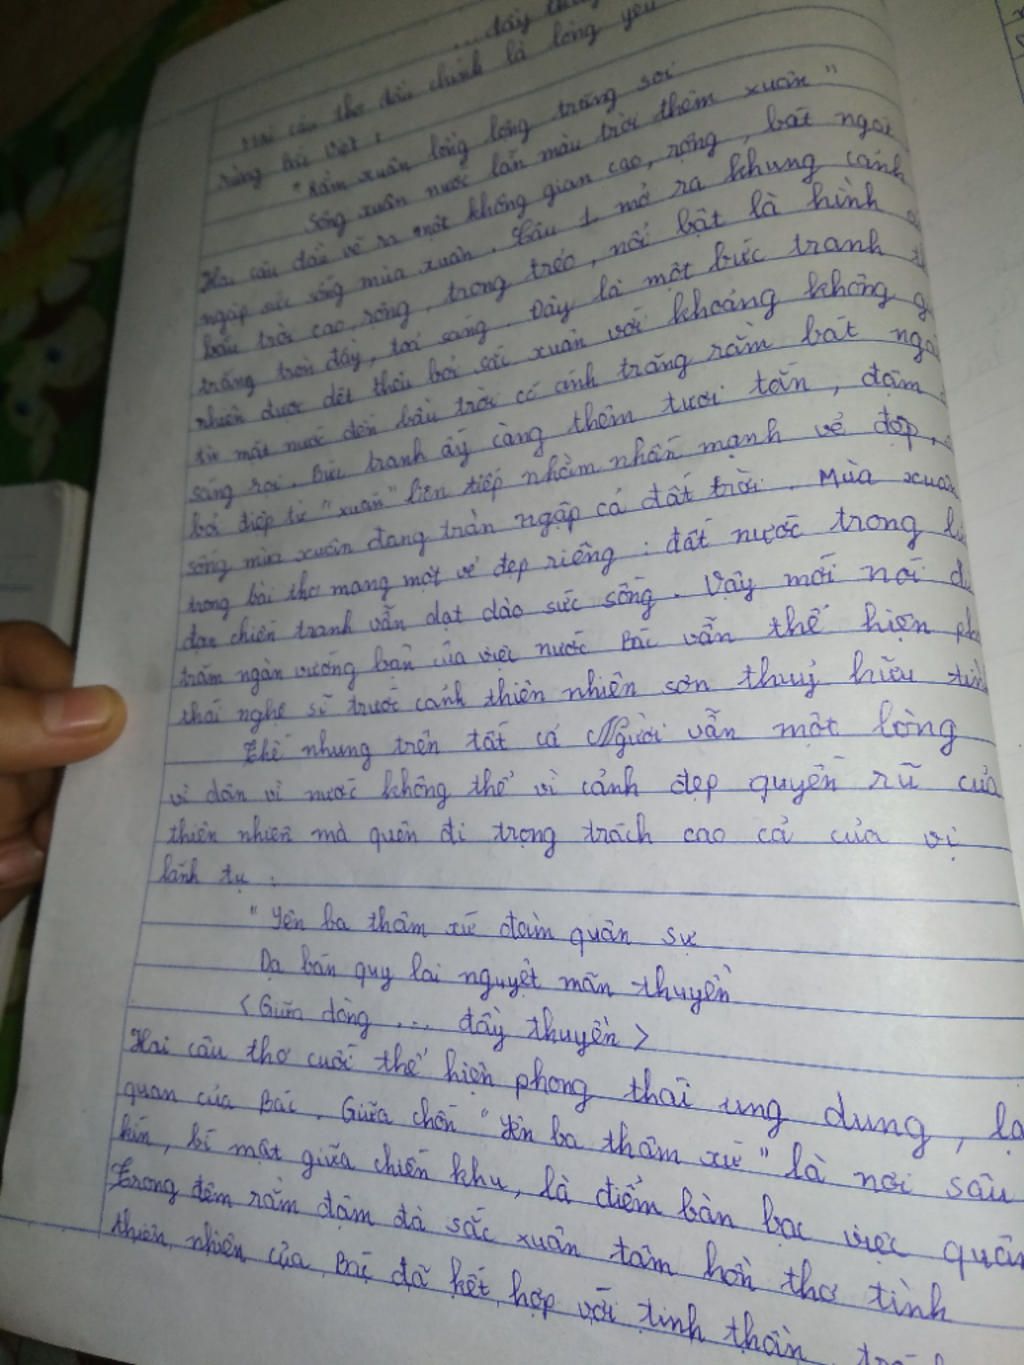 ... đầy thu
Hai câu thơ đầu chính là lòng yêu
rừng bắc việt :
"Rằm xuân lồng lộng trăng soi
Sông xuân nước lẫn màu trời thêm xuân"
Hai câu đầu vẽ ra một không gian cao, rộng, bát ngát
ngập sức sống mùa xuân. Câu 1 mở ra khung cảnh
bầu trời cao, rộng, trong trẻo, nổi bật là hình
trăng tròn đầy, toả sáng. Đây là một bức tranh
nhiên được dệt thêu bởi sắc xuân với khoảng không
từ mặt nước đến bầu trời có ánh trăng rằm bát ngá
sáng rọi. Bức tranh ấy càng thêm tươi tắn, đậm
bởi điệp từ "xuân" liên tiếp nhằm nhấn mạnh vẻ đẹp,
sống mùa xuân đang tràn ngập cả đất trời. Mùa xuân
trong bài thơ mang một vẻ đẹp riêng : đất nước trong
đạn chiến tranh vẫn dạt dào sức sống. Vậy mới nói
trăm ngàn vướng bận của việc nước Bác vẫn thể hiện
thái nghệ sĩ trước cảnh thiên nhiên sơn thuỷ hữu tình
Thế nhưng trên tất cả Người vẫn một lòng
vì dân vì nước không thể vì cảnh đẹp quyến rũ của
thiên nhiên mà quên đi trọng trách cao cả của vị
lãnh tụ :
"Yên ba thâm xứ đàm quân sự
Dạ bán quy lai nguyệt mãn thuyền
< Giữa dòng ... đầy thuyền >
Hai câu thơ cuối thể hiện phong thái ung dung, lạ
quan của Bác. Giữa chốn "Yên ba thâm xứ" là nơi sâu
kín, bí mật giữa chiến khu, là điểm bàn bạc việc quân
Trong đêm rằm đậm đà sắc xuân tâm hồn thơ tình
thiên nhiên của Bác đã kết hợp với tinh thần